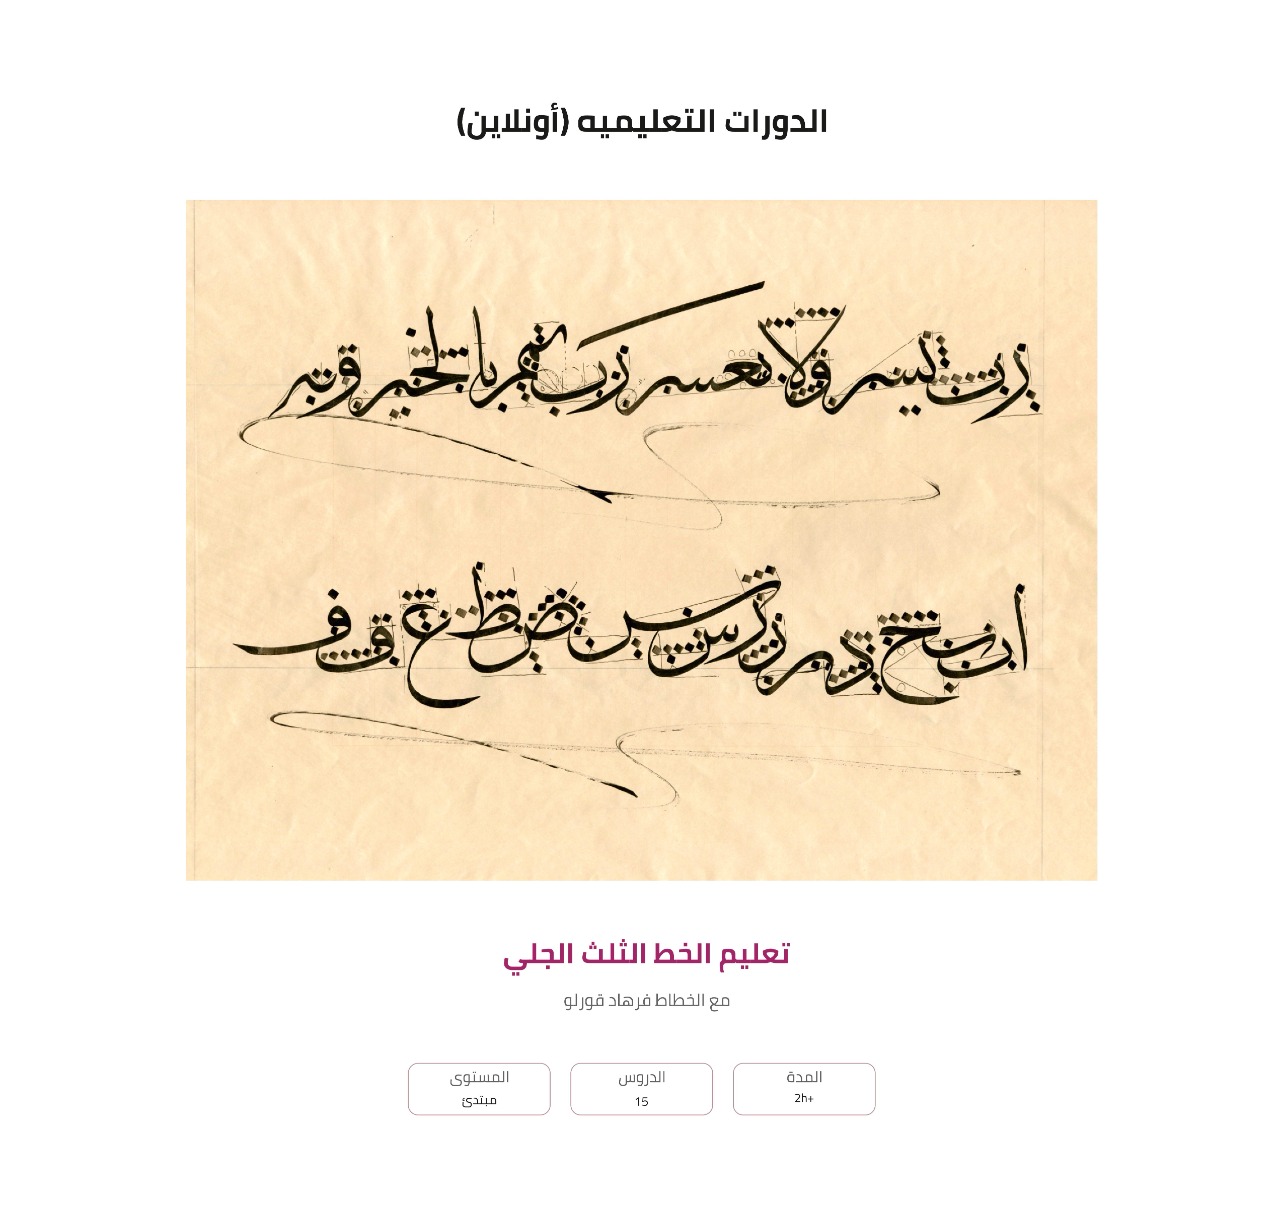 الدورات التعليميه (أونلاين)
رب يسر ولا تعسر رب تمم بالخير وبه
تعليم الخط الثلث الجلي
مع الخطاط فرهاد قورلو
المدة
2h+
الدروس
15
المستوى
مبتدئ